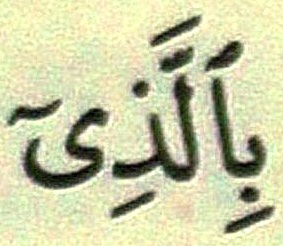 بِٱلَّذِىٓ